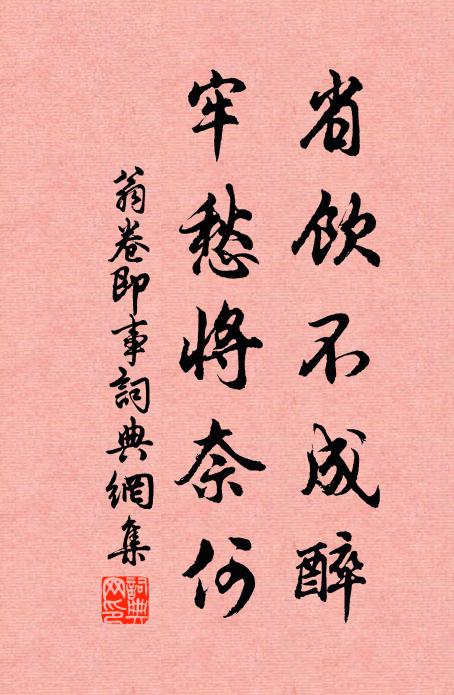 省飲不成醉
牢愁將奈何
翁卷即事詞典網集
詞典
网印